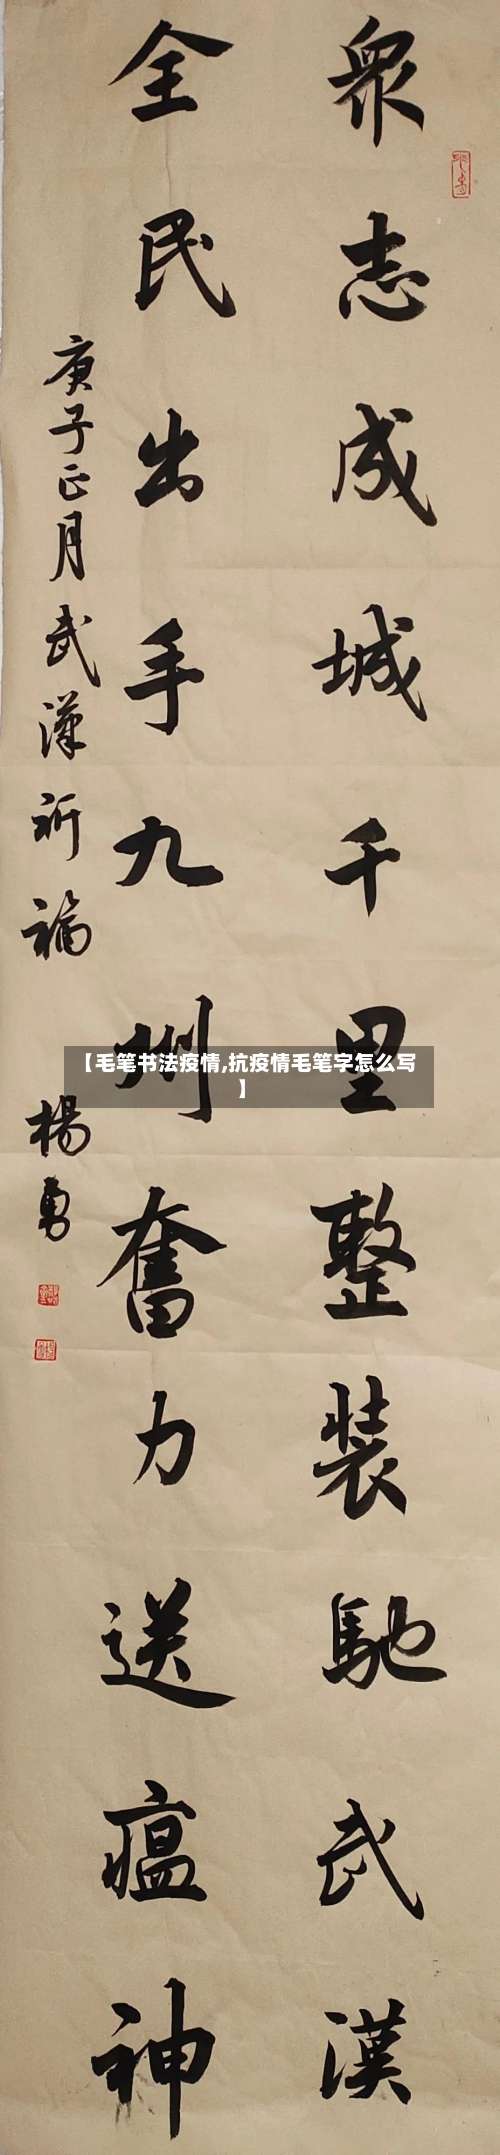 眾志成城千里整裝馳武漢
全民出手九州奮力送瘟神
庚子正月武漢祈福
楊勇
【毛笔书法疫情,抗疫情毛笔字怎么写
】